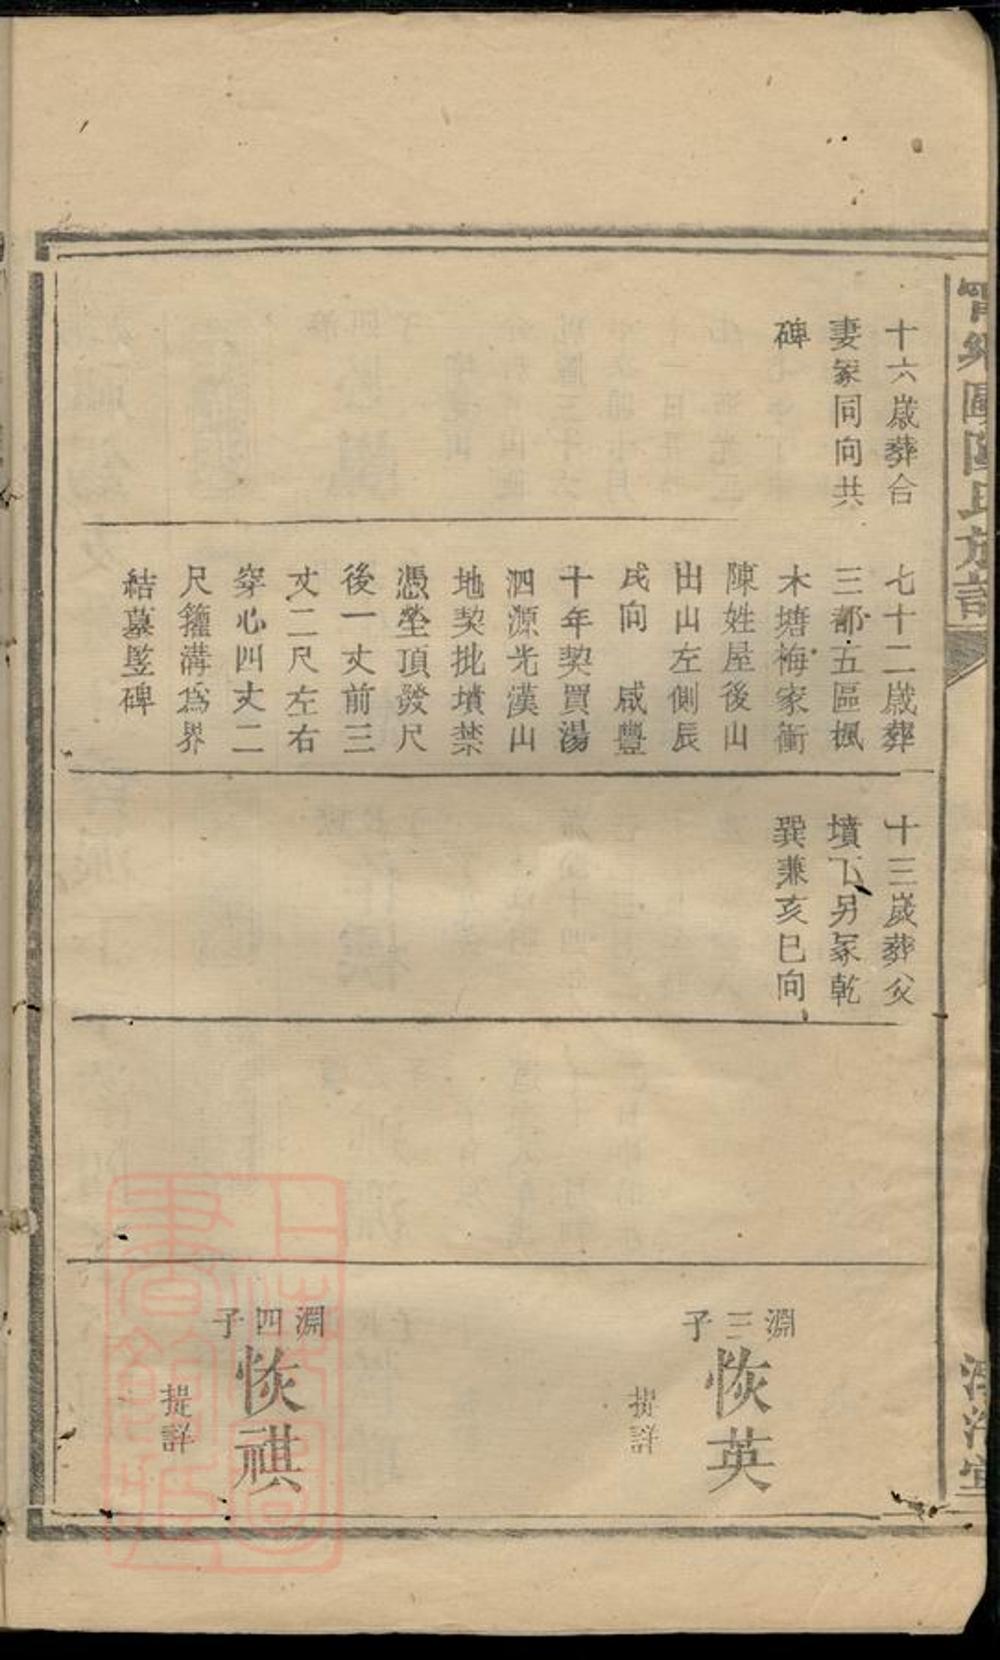 甯鄉歐陽氏族譜
十六歲葬合
妻冢同向共
碑
七十二歲葬
三都五區楓
木塘梅家衝
陳姓屋後山
出山左側辰
戌向 咸豐
十年契買湯
泗源光漢山
地契批墳禁
憑塋頂發尺
後一丈前三
丈二尺左右
穿心四丈二
尺籱溝爲界
結墓竪碑
十三歲葬父
墳下另冢乾
巽兼亥巳向
淵三子
恢英
提詳
淵四子
恢祺
提詳
上海圖
書館藏